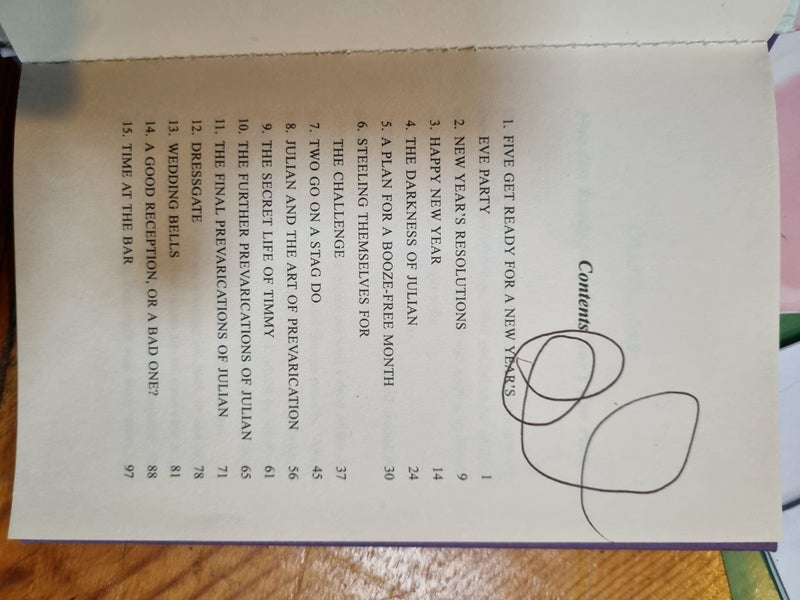 Contents
1. FIVE GET READY FOR A NEW YEAR'S
EVE PARTY 1
2. NEW YEAR'S RESOLUTIONS 9
3. HAPPY NEW YEAR 14
4. THE DARKNESS OF JULIAN 24
5. A PLAN FOR A BOOZE-FREE MONTH 30
6. STEELING THEMSELVES FOR
THE CHALLENGE 37
7. TWO GO ON A STAG DO 45
8. JULIAN AND THE ART OF PREVARICATION 56
9. THE SECRET LIFE OF TIMMY 61
10. THE FURTHER PREVARICATIONS OF JULIAN 65
11. THE FINAL PREVARICATIONS OF JULIAN 71
12. DRESSGATE 78
13. WEDDING BELLS 81
14. A GOOD RECEPTION, OR A BAD ONE? 88
15. TIME AT THE BAR 97